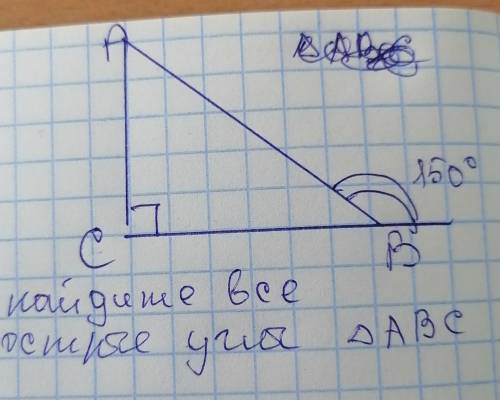 A
150°
C
B
найдите все
острые углы ΔABC